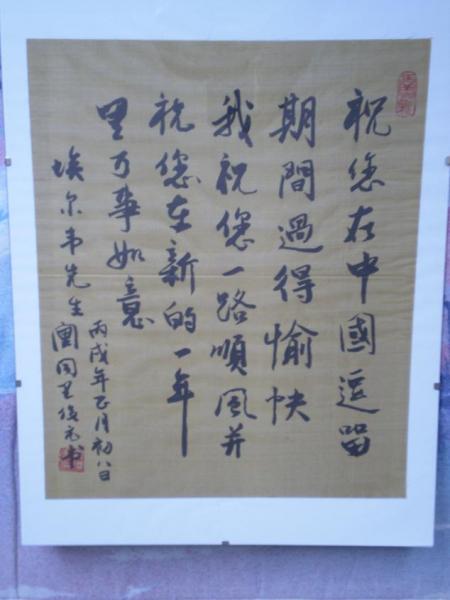 祝您在中國逗留
期間過得愉快
我祝您一路順风并
祝您在新的一年
里万事如意
丙戌年正月初八日
埃尔韦先生